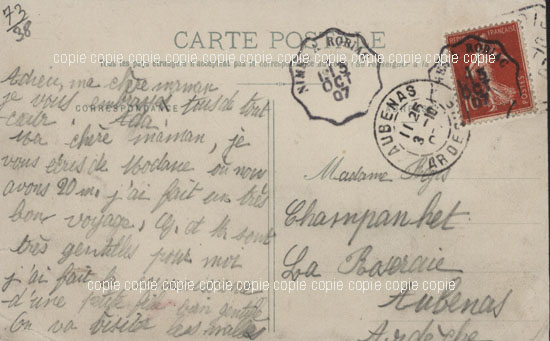 73
38
CARTE POSTALE
CORRESPONDANCE
copie copie copie copie copie copie copie copie copie copie
Adieu, ma chère maman
je vous embrasse tous de tout
cœur. Ada
Ma chère maman, je
vous écris de Modane où nous
avons 20 m. j'ai fait un très
bon voyage, G. et M. sont
très gentilles pour moi
j'ai fait la
d'une petite bien gentille
On va visiter les malles
copie copie copie copie copie copie copie copie copie copie
copie copie copie copie copie copie copie copie copie copie
NIMES
13
OCT
07
AUBENAS
11 25
3 -10
ARDECHE
FRANÇAISE
POSTES
10
Madame
Champanhet
La
Aubenas
Ardèche